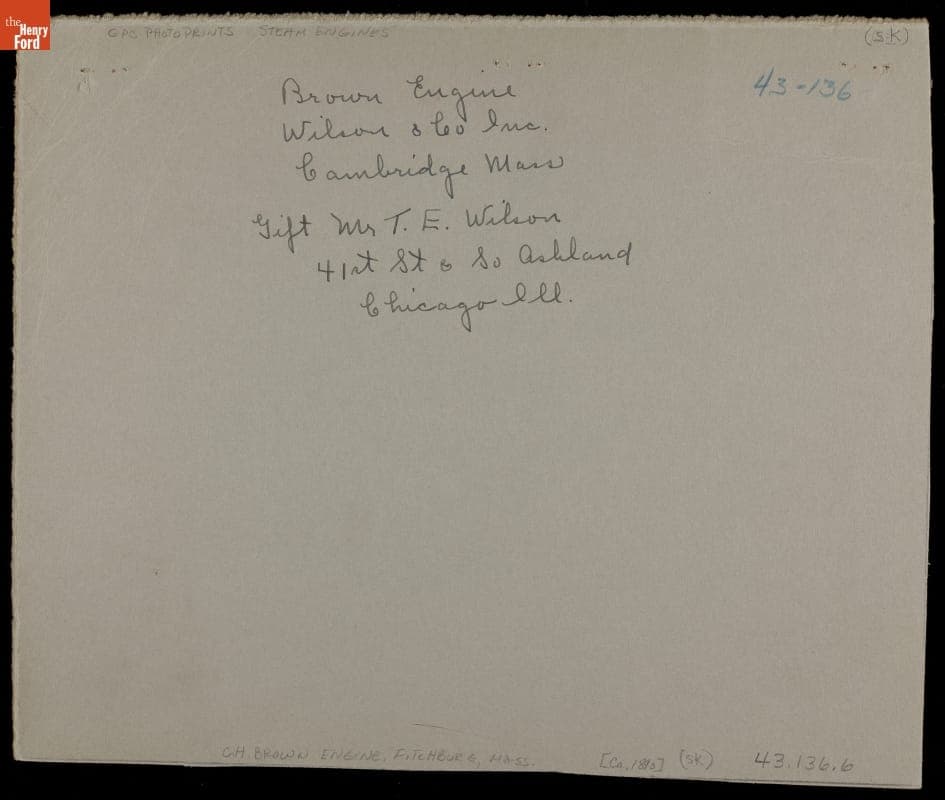 the
Henry
Ford
GPC PHOTOPRINTS STEAM ENGINES (SK)
43-136
Brown Engine
Wilson & Co Inc.
Cambridge Mass
Gift Mr T. E. Wilson
41st St & So Ashland
Chicago Ill.
C.H. BROWN ENGINE, FITCHBURG, MASS. [Ca. 1880] (SK) 43.136.6